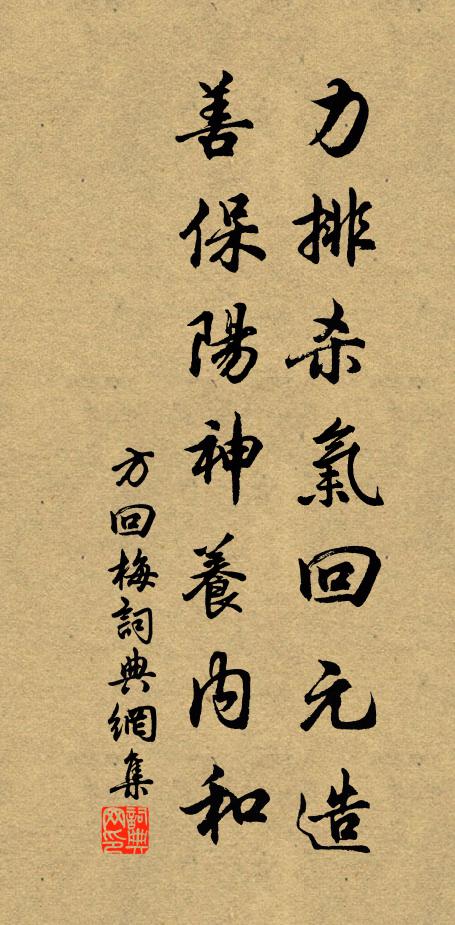 力排杀氣回元造
善保陽神養内和
方回梅詞典網集
詞典
网印